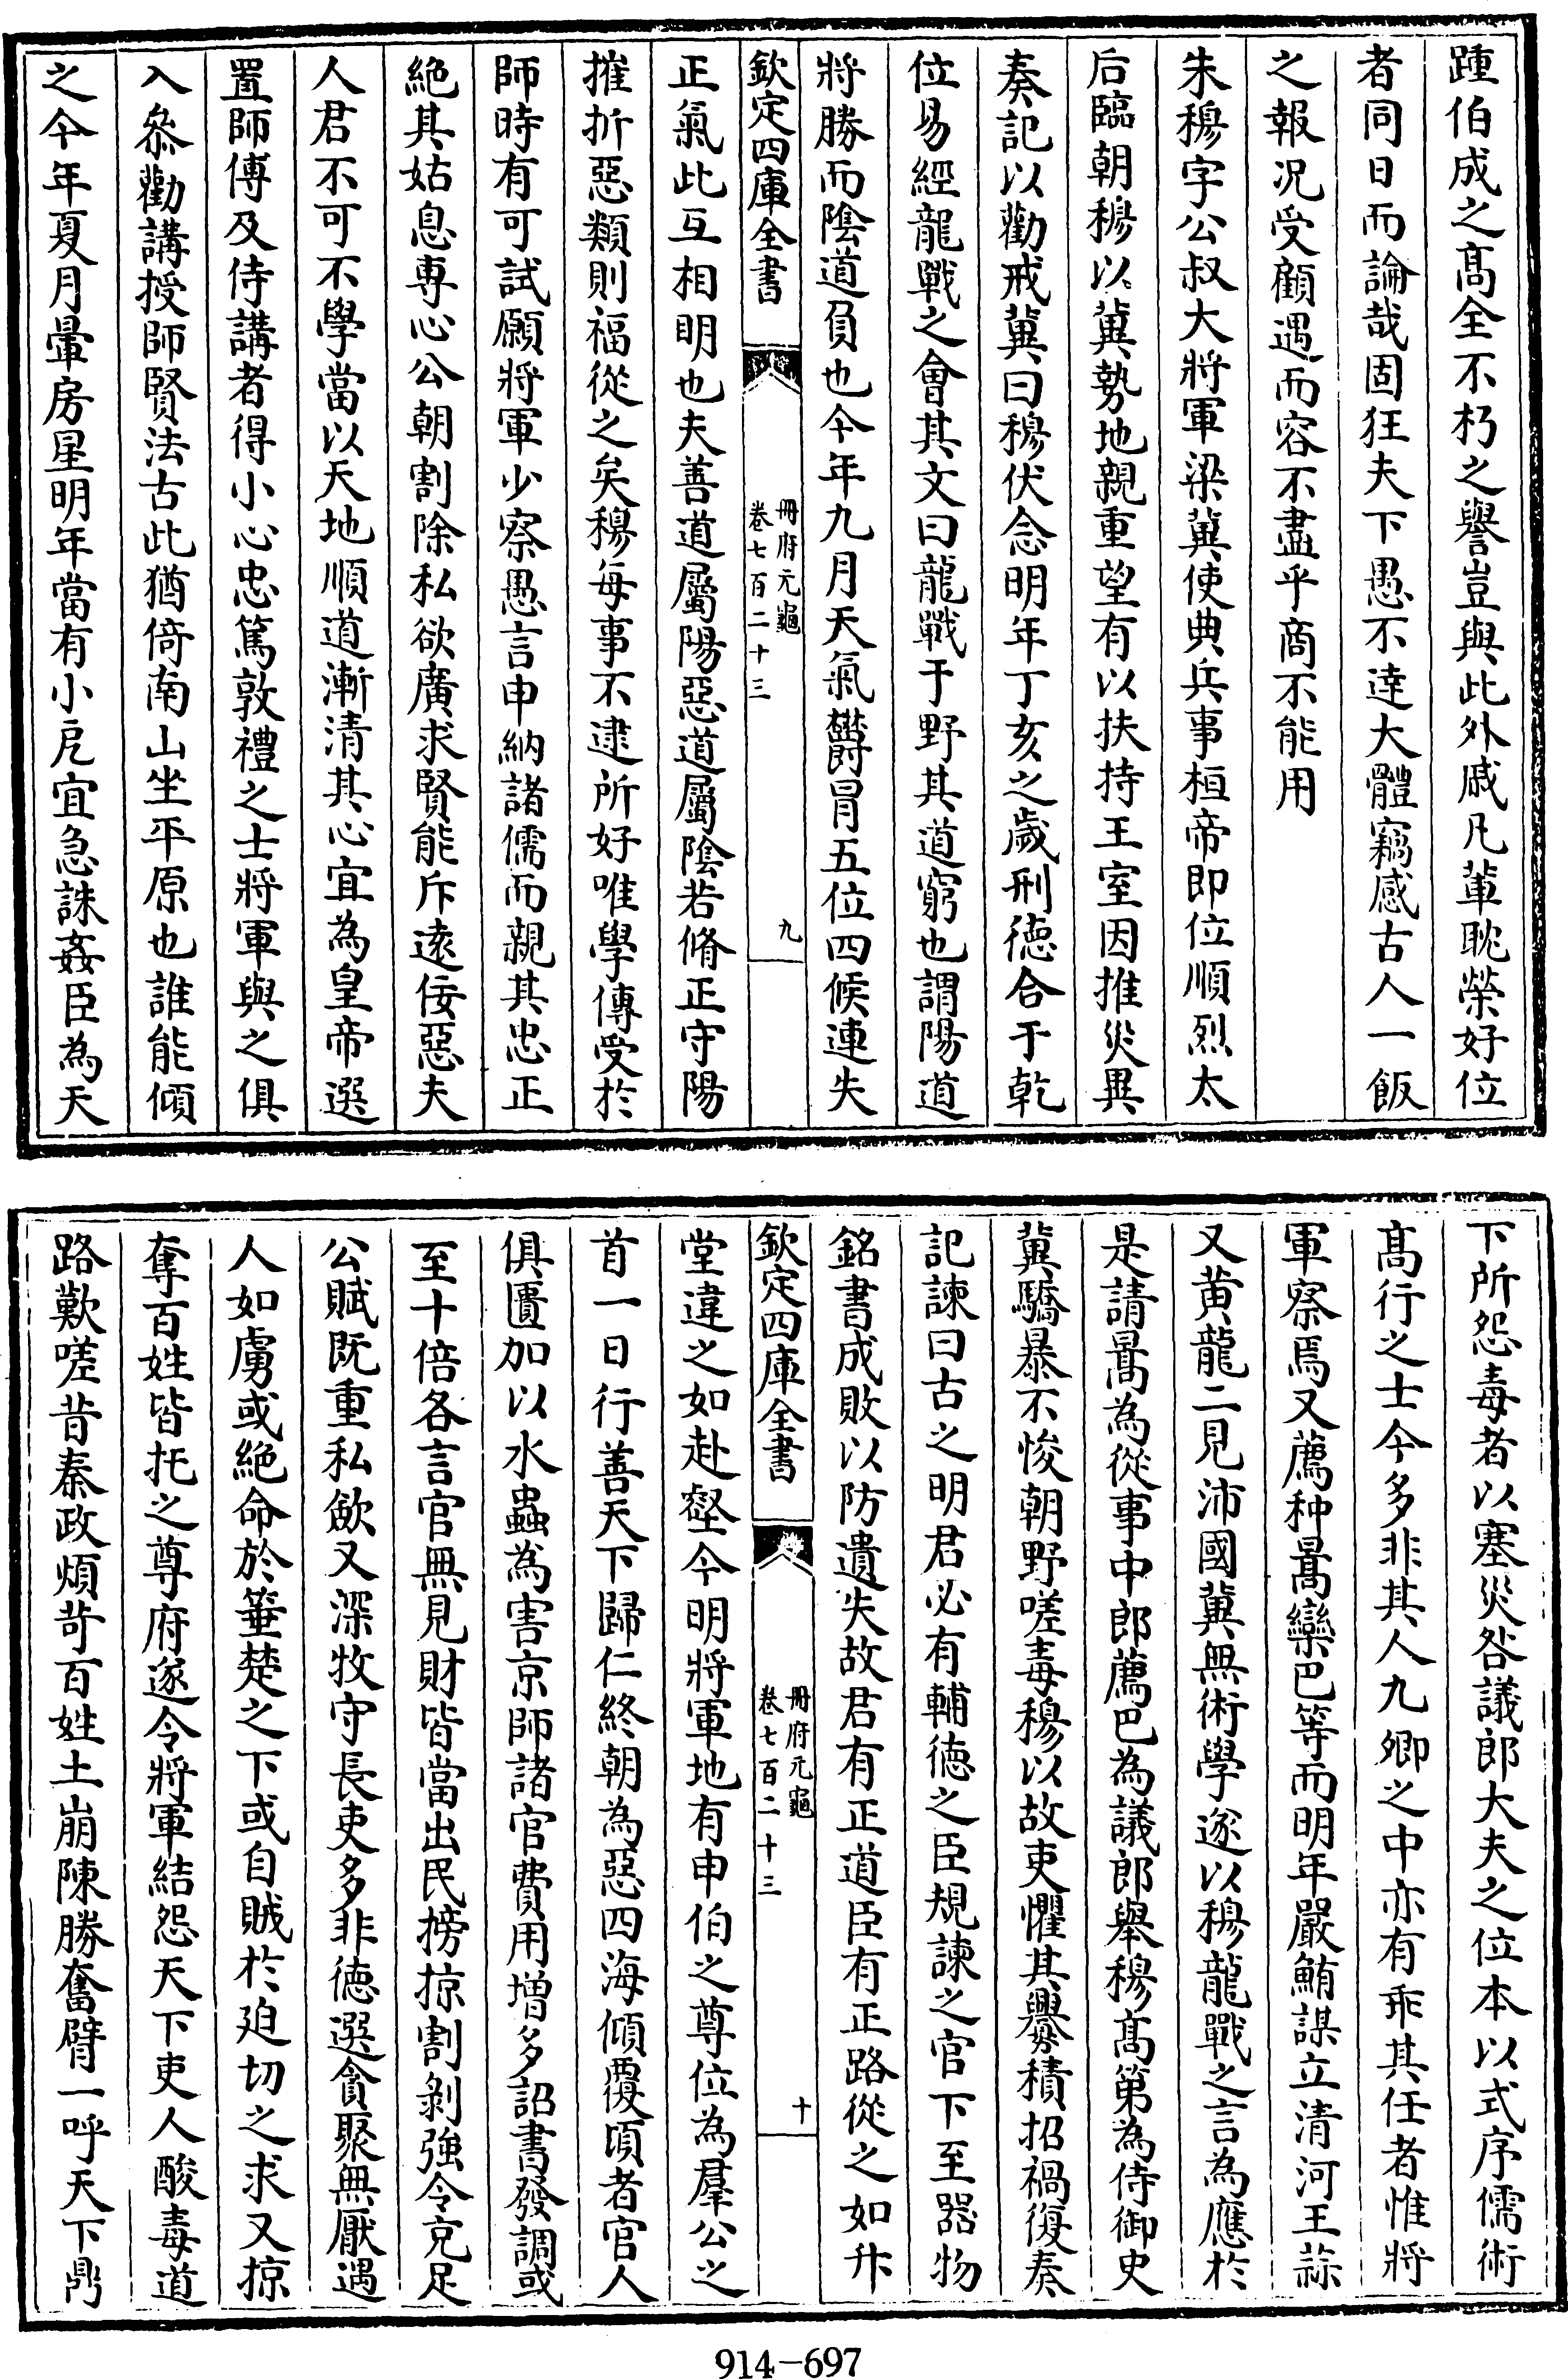 踵伯成之髙全不朽之譽豈與此外戚凡輩耽榮好位
者同日而論哉固狂夫下愚不達大體竊感古人一飯
之報况受顧遇而容不盡乎商不能用
朱穆字公叔大將軍梁冀使典兵事桓帝即位順烈太
后臨朝穆以冀勢地親重望有以扶持王室因推災異
奏記以勸戒冀曰穆伏念明年丁亥之歲刑徳合于乾
位易經龍戰之會其文曰龍戰于野其道窮也謂陽道
將勝而陰道負也今年九月天氣欝冒五位四候連失
欽定四庫全書
冊府元龜
卷七百二十三
九
正氣此互相明也夫善道屬陽惡道屬陰若脩正守陽
摧折惡類則福從之矣穆每事不逮所好唯學傳受於
師時有可試願將軍少察愚言申納諸儒而親其忠正
絶其姑息専心公朝割除私欲廣求賢能斥逺佞惡夫
人君不可不學當以天地順道漸清其心宜為皇帝選
置師傅及侍講者得小心忠篤敦禮之士將軍與之俱
入叅勸講授師賢法古此猶倚南山坐平原也誰能傾
之今年夏月暈房星明年當有小戹宜急誅姦臣為天
下所怨毒者以塞災咎議郎大夫之位本以式序儒術
髙行之士今多非其人九卿之中亦有乖其任者惟將
軍察焉又薦种暠欒巴等而明年嚴鮪謀立清河王蒜
又黄龍二見沛國冀無術學遂以穆龍戰之言為應於
是請暠為從事中郎薦巴為議郎舉穆髙第為侍御史
冀驕暴不悛朝野嗟毒穆以故吏懼其釁積招禍復奏
記諫曰古之明君必有輔徳之臣規諫之官下至器物
銘書成敗以防遺失故君有正道臣有正路從之如升
欽定四庫全書
冊府元龜
卷七百二十三
十
堂違之如赴壑今明將軍地有申伯之尊位為羣公之
首一日行善天下歸仁終朝為惡四海傾覆頃者官人
俱匱加以水蟲為害京師諸官費用增多詔書發調或
至十倍各言官無見財皆當出民搒掠割剝強令充足
公賦既重私歛又深牧守長吏多非徳選貪聚無厭遇
人如虜或絶命於箠楚之下或自賊於廹切之求又掠
奪百姓皆托之尊府遂令將軍結怨天下吏人酸毒道
路歎嗟昔秦政煩苛百姓土崩陳勝奮臂一呼天下鼎
914-697